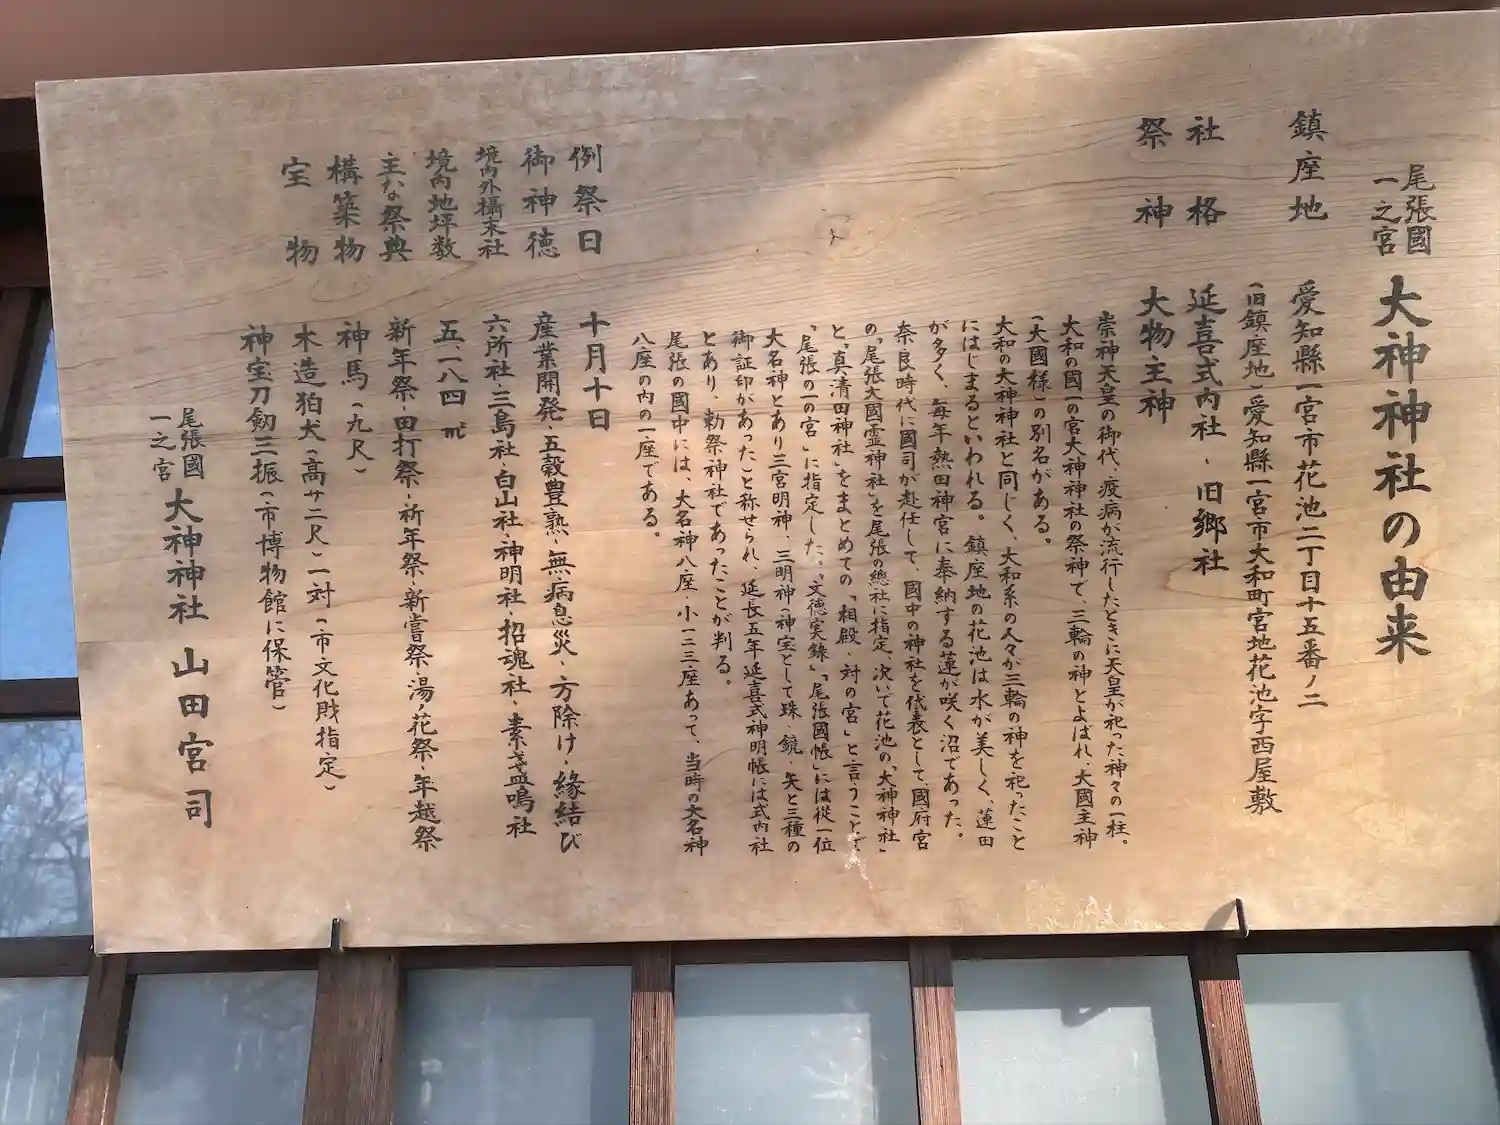 尾張國
一之宮
大神神社の由来
鎮座地
愛知縣一宮市花池二丁目十五番ノ二
(旧鎮座地)愛知縣一宮市大和町宮地花池字西屋敷
社格
延喜式内社、旧郷社
祭神
大物主神
崇神天皇の御代、疫病が流行したときに天皇が祀った神々の一柱。
大和の國一の宮大神神社の祭神で、三輪の神とよばれ、大國主神
(大國様)の別名がある。
大和の大神神社と同じく、大和系の人々が三輪の神を祀ったこと
にはじまるといわれる。鎮座地の花池は水が美しく、蓮田
が多く、毎年熱田神宮に奉納する蓮が咲く沼であった。
奈良時代に國司が赴任して、國中の神社を代表として、國府宮
の「尾張大國霊神社」を尾張の總社に指定、次いで花池の「大神神社」
と「真清田神社」をまとめての「相殿、対の宮」と言うことで
「尾張の一の宮」に指定した。「文徳実録」「尾張國帳」には従一位
大名神とあり三宮明神、三明神(神宝として珠、鏡、矢と三種の
御証印があった)と称せられ、延長五年延喜式神明帳には式内社
とあり、勅祭神社であったことが判る。
尾張の國中には、大名神八座、小一二三座あって、当時の大名神
八座の内の一座である。
例祭日
十月十日
御神徳
産業開発、五穀豊熟、無病息災、方除け、縁結び
境内外攝末社
六所社、三島社、白山社、神明社、招魂社、素盞鳴社
境内地坪数
五、一八四㎡
主な祭典
新年祭、田打祭、祈年祭、新嘗祭、湯ノ花祭、年越祭
構築物
神馬(九尺)
木造狛犬(高サ二尺)一対(市文化財指定)
宝物
神宝刀劔三振(市博物館に保管)
尾張國
一之宮
大神神社 山田宮司